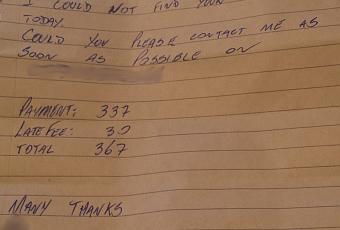 I COULD NOT FIND YOUR
TODAY.
COULD YOU PLEASE CONTACT ME AS
SOON AS POSSIBLE ON
PAYMENT: 337
LATE FEE: 30
TOTAL 367
MANY THANKS